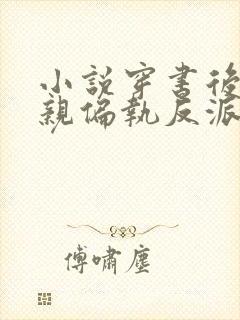 小説穿書後
親偏執反派
傅嘯塵